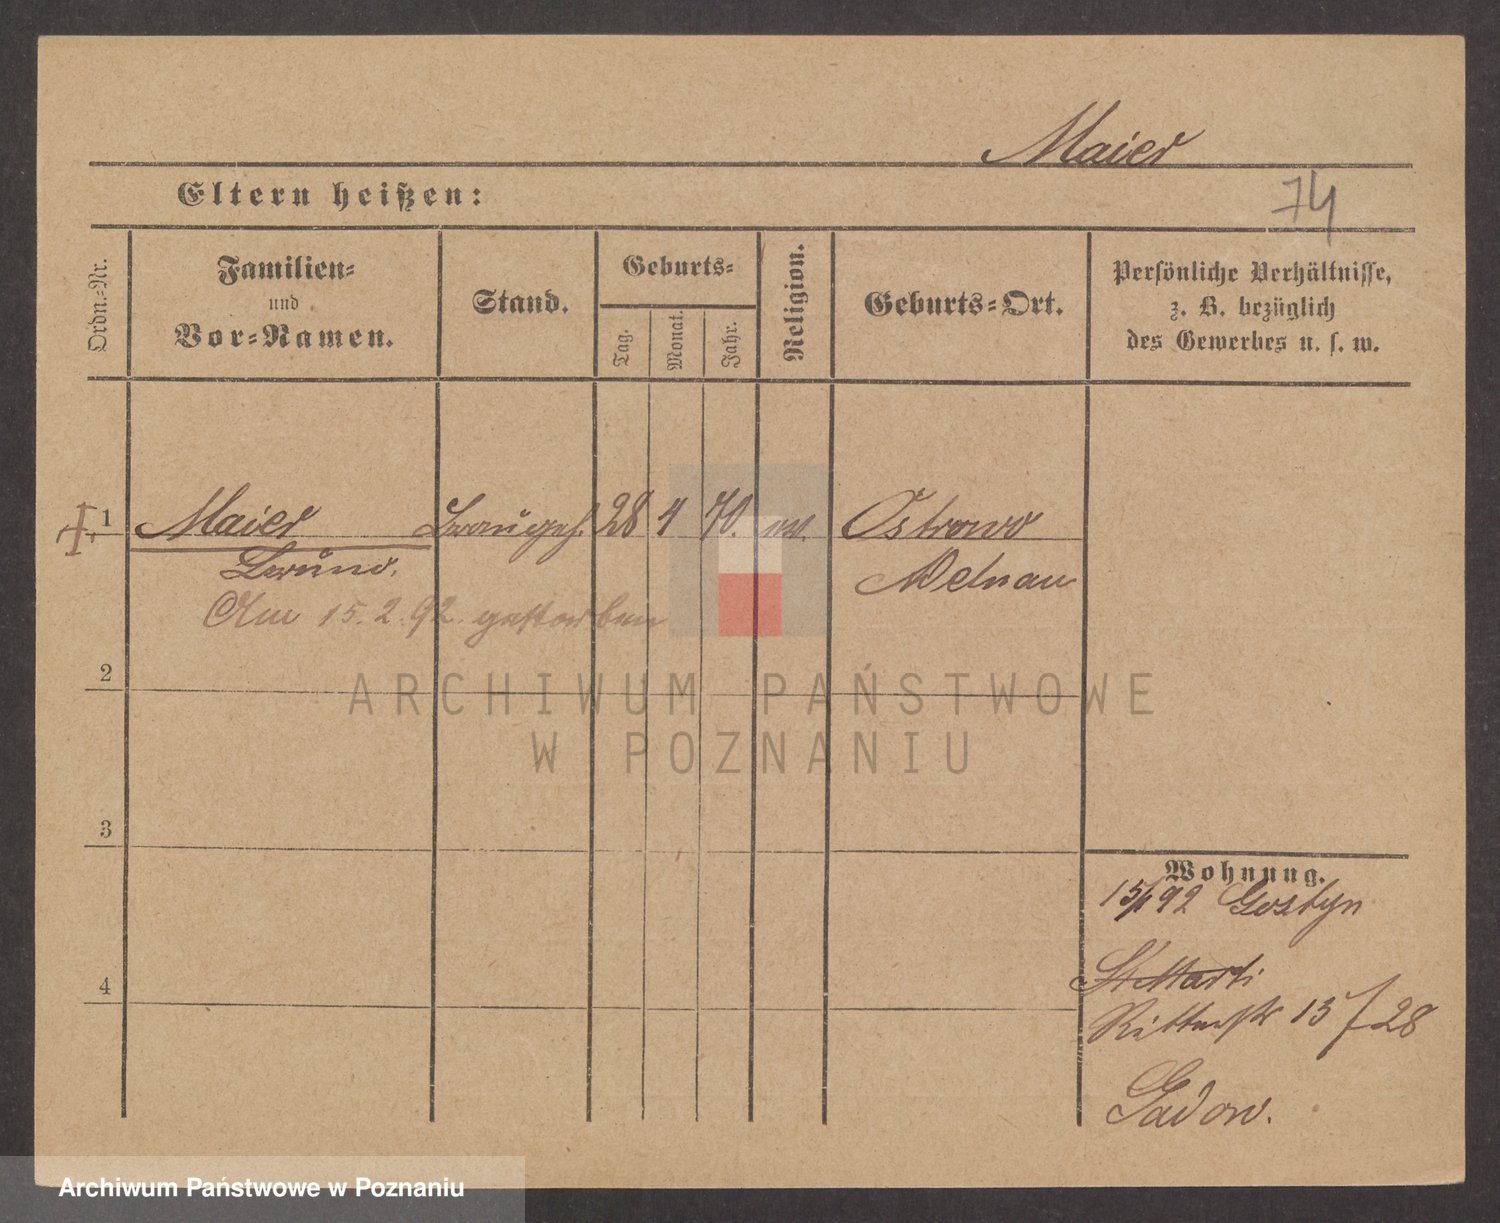 Maier
Eltern heißen:
74
Ordn.-Nr.
Familien-
und
Vor-Namen.
Stand.
Geburts-
Tag.
Monat.
Jahr.
Religion.
Geburts-Ort.
Persönliche Verhältnisse,
z. B. bezüglich
des Gewerbes u. s. w.
1 Maier 28 4 70. ev. Ostrowo
Adelnau
Am 15.2.92. gestorben
2
ARCHIWUM PAŃSTWOWE
W POZNANIU
3
Wohnung.
15/1 92 Gostyn
4
St Marti
Ritterstr 13 / 28
Gadow.
Archiwum Państwowe w Poznaniu